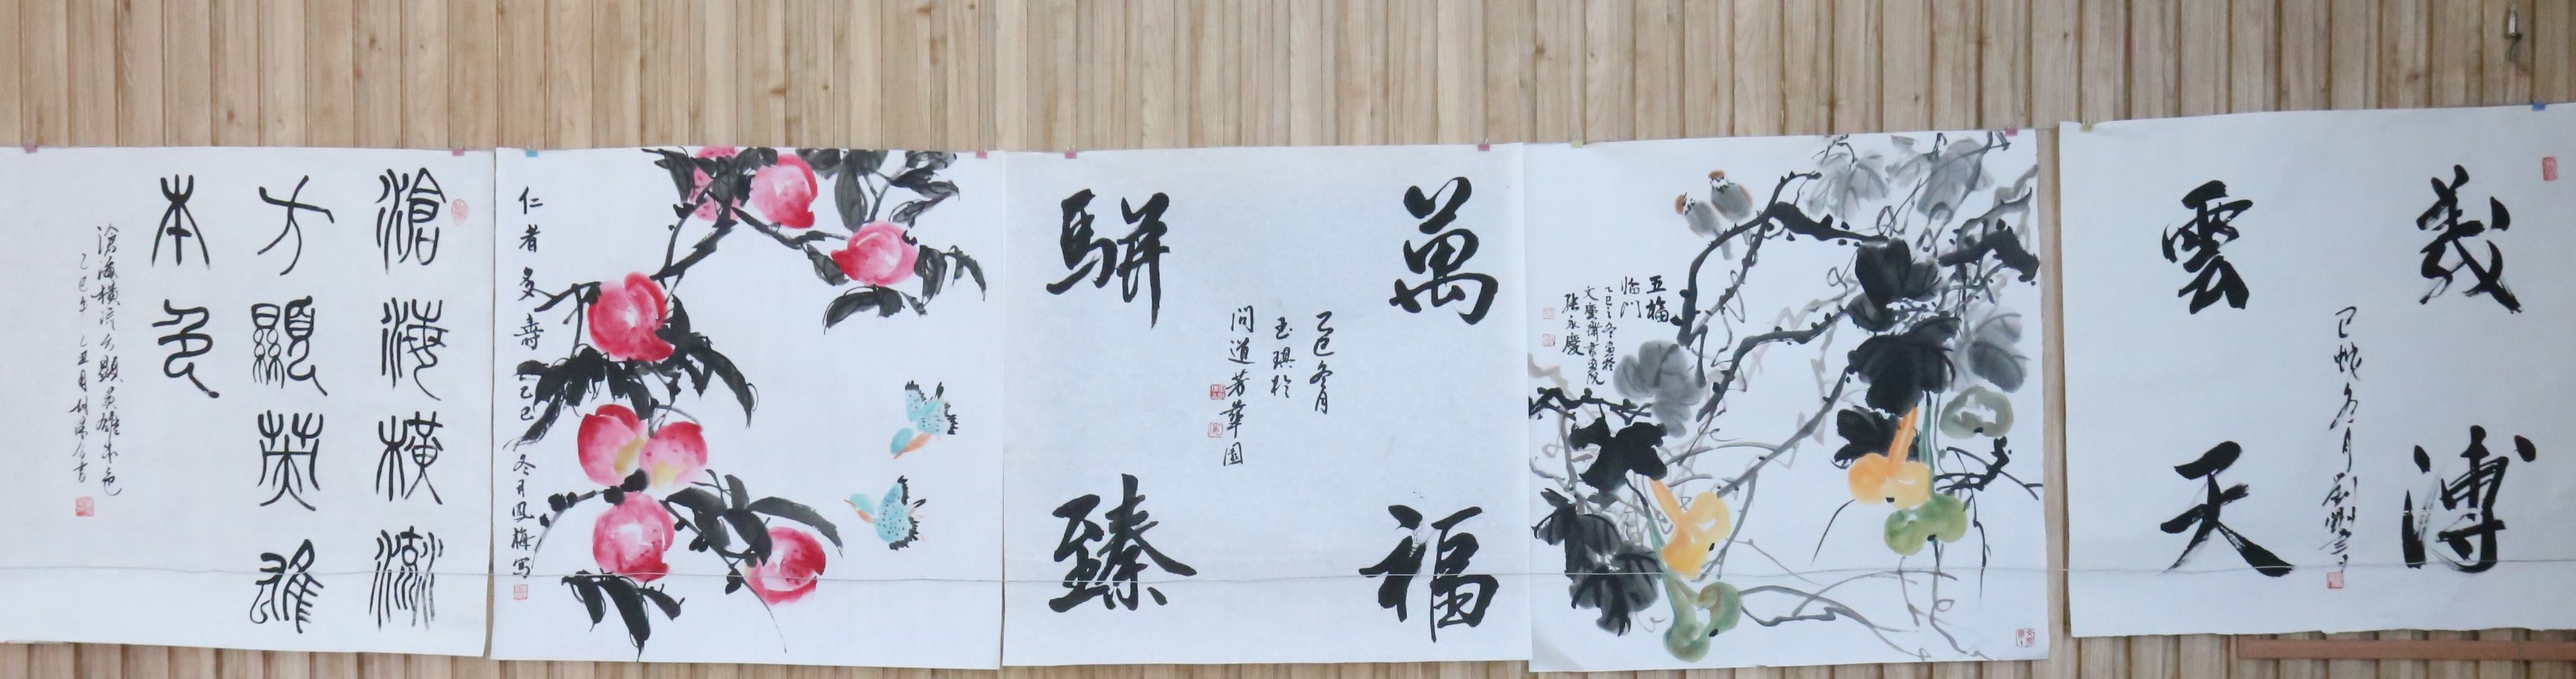 滄海橫流
方顯英雄
本色
滄海橫流方顯英雄本色
仁者多壽
乙巳冬月鳳梅写
萬福
駢臻
乙巳冬月
玉琪於
问道芳華園
五福
临门
乙巳之冬画於
张永慶
義薄
雲天
乙巳蛇冬月